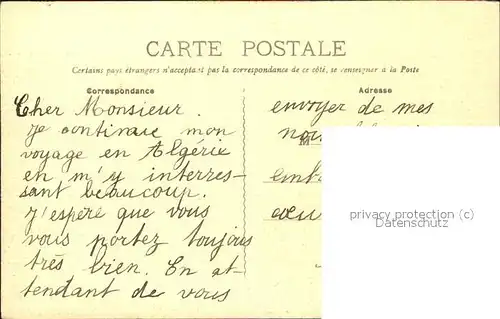 CARTE POSTALE
Certains pays étrangers n'acceptant pas la correspondance de ce côté, se renseigner a la Poste
Correspondance
Adresse
Cher Monsieur.
Je continue mon
voyage en Algérie
en m'y interres-
sant beaucoup.
J'espère que vous
vous portez toujours
très bien. En at-
tendant de vous
envoyer de mes
M
privacy protection (c)
Datenschutz